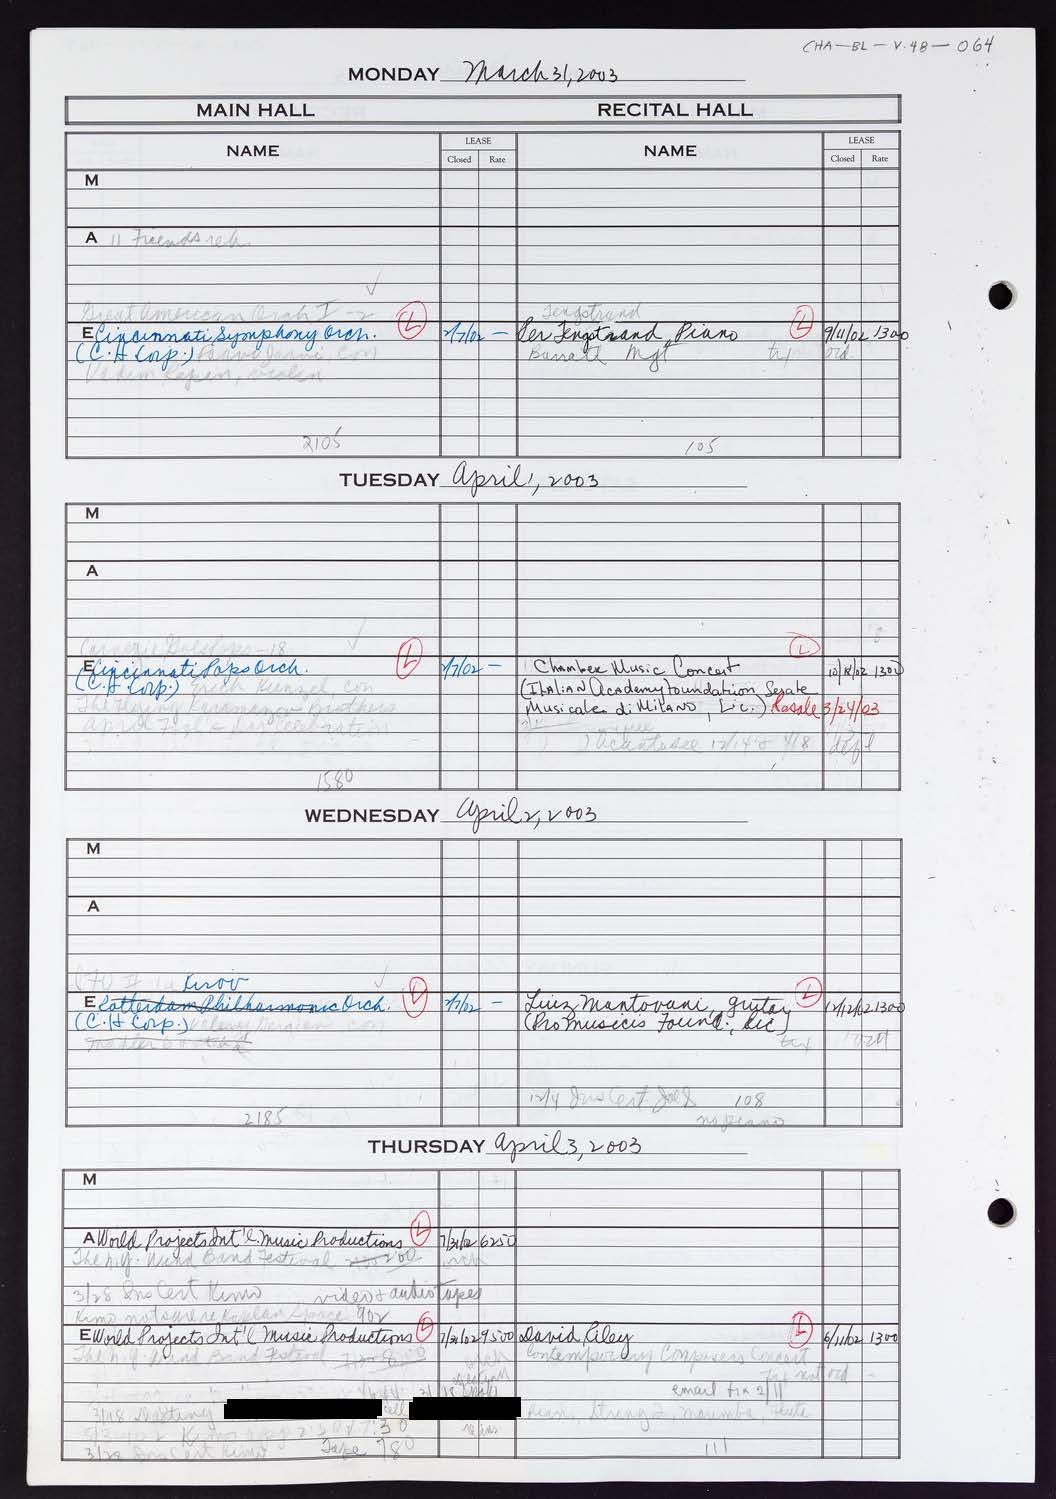 CHA-BL-V.48-064
MONDAY March 31, 2003
MAIN HALL RECITAL HALL
NAME LEASE Closed Rate NAME LEASE Closed Rate
M
A 11 Friends reh.
Great American Orch I -2 Tengstrand
E Cincinnati Symphony Orch. L 2/7/02 - Per Tengstrand, Piano L 9/11/02 1300
(C.H Corp.) Paavo Jarvi, con Barrett Mgt
Vadim Repin, violin
2105 105
TUESDAY April 1, 2003
M
A
Carnegie Goes Pops -18 L
E Cincinnati Pops Orch. L 2/7/02 - Chamber Music Concert 10/18/02 1300
(C.H. Corp.) Erich Kunzel, con (Italian Academy Foundation, Serate
The Flying Karamazov Brothers Musicale di Milano, Lic.) Resale 3/24/03
April Fool's Day Celebration
1580
WEDNESDAY April 2, 2003
M
A
Kirov
E Rotterdam Philharmonic Orch. L 2/7/02 - Luiz Mantovani, guitar L 12/12/02 1300
(C.H Corp.) Valery Gergiev con (Pro Musicis Found., Lic)
12/4 Ins Cert 108
2185 no piano
THURSDAY April 3, 2003
M
A World Projects Int'l. Music Productions L 7/31/02 6250
The N.Y. Wind Band Festival
3/28 Ins Cert Kimo video & audio tapes
Kimo not sure re Kaplan Space 902
E World Projects Int'l Music Productions L 7/31/02 9500 David Riley L 6/11/02 1300
The N.Y. Wind Band Festival Contemporary Composers Concert
not ord
email 2/11
3/18 cell
Kimo 7:30
3/28 Ins Cert Kimo Tape 780 111